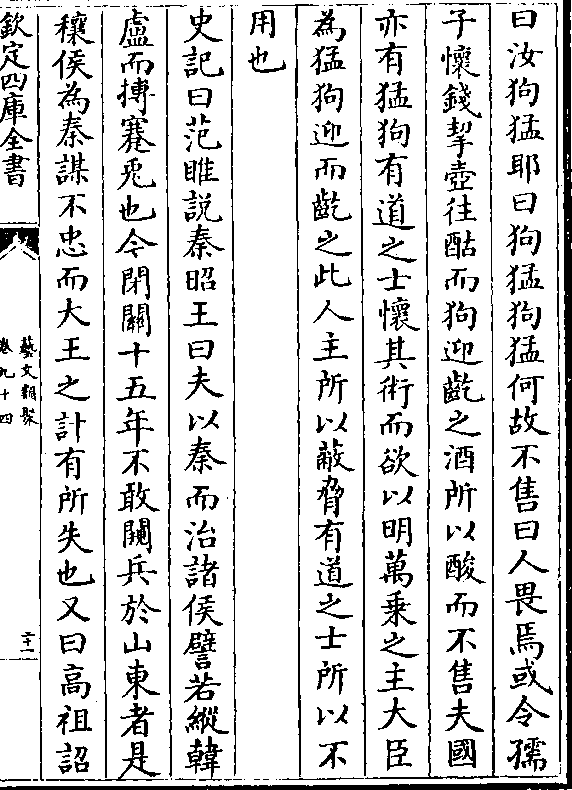 曰汝狗猛耶曰狗猛狗猛何故不售曰人畏焉或令孺
子懷錢挈壺往酤而狗迎齕之酒所以酸而不售夫國
亦有猛狗有道之士懷其術而欲以明萬乗之主大臣
為猛狗迎而齕之此人主所以蔽脅有道之士所以不
用也
史記曰范睢說秦昭王曰夫以秦而治諸侯譬若縱韓
盧而搏蹇兎也今閉關十五年不敢闚兵於山東者是
穰侯為秦謀不忠而大王之計有所失也又曰高祖詔
欽定四庫全書
藝文類聚
卷九十四
二十一